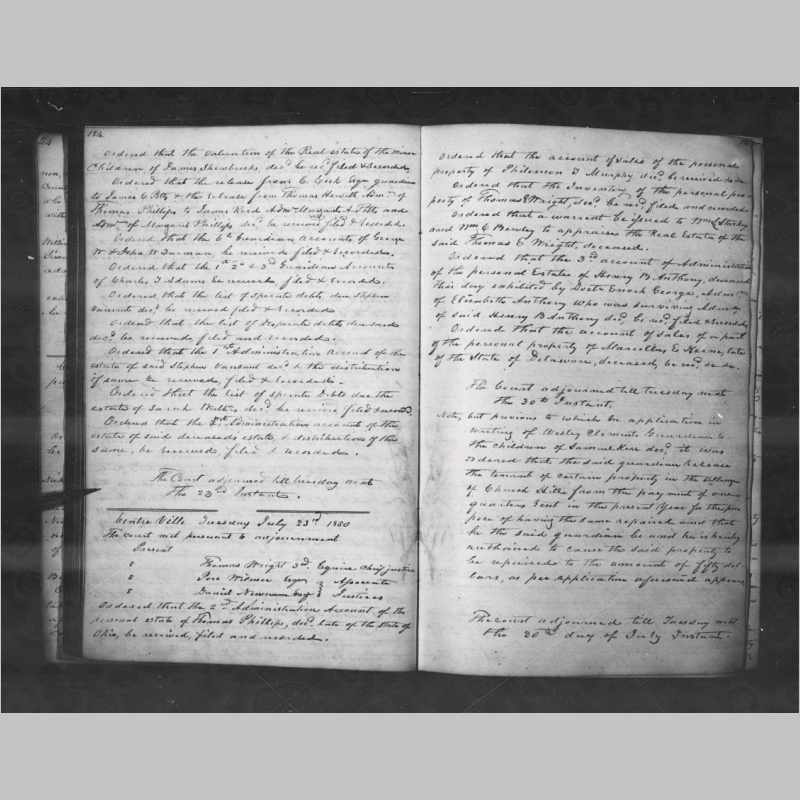 184
Ordered that the valuation of the Real estate of the minor
Children of James decd. be recd. filed & Recorded
Ordered that the release from C. guardian
to James C. & the release from Thomas Hewitt Admr. of
Thomas Phillips to James Admr. Margaret A. and
Admr. of Margaret Phillips decd. be received filed & recorded.
Ordered that the 6th Guardian Accounts of George
W. & John W. be received filed & recorded.
Ordered that the 1st 2d & 3d Guardian Accounts
of Charles be received, filed & recorded.
Ordered that the list of sperate debts, due Stephen
Vansant decd. be received filed & recorded
Ordered that the list of Desperate debts due said
decd. be received, filed and recorded.
Ordered that the 1st Administration Account of the
estate of said Stephen Vansant decd. & the distribution
of same be received, filed & recorded.
Ordered that the list of sperate Debts due the
estate of Sarah decd. be received filed & record.
Ordered that the Administration accounts of the
estate of said deceaseds estate & distributions of the
same, be received, filed & recorded.
The Court adjourned till Tuesday next
The 23d Instant.
Centre Ville Tuesday July 23d 1850
The court met pursuant to adjournment
Present
Thomas Wright 3d. Esquire Chief justice
Pere Wilmer Esqr. Associate
Daniel Newnam Esqr. Justices
Ordered that the 2d Administration Account of the
personal estate of Thomas Phillips, decd. late of the State of
Ohio, be received, filed and recorded.
Ordered that the account of sales of the personal
property of Philemon T. Murphy decd. be received &c &c
Ordered that the Inventory of the personal pro-
perty of Thomas E Wright, decd. be recd. filed and recorded.
Ordered that a warrant be issued to Wm.
and Wm. C. to appraise the Real Estate of the
said Thomas E. Wright, deceased.
Ordered that the 3d account of Administration
of the personal Estate of Henry B. Anthony, deceased
this day exhibited by Doctr. Enoch George,
of Elizabeth Anthony who was surviving Admr.
of said Henry B Anthony decd. be recd. filed & recorded
Ordered that the account of sales of a part
of the personal property of Marcellus E Keene, late
of the State of Delaware, deceased, be recd. &c &c.
The Court adjourned till Tuesday next
the 30th Instant.
Note, but previous to which be application in
writing of Wesley Clements Guardian to
the children of Samuel Kerr decd. it was
ordered that the said guardian release
the tenant of certain property in the village
of Church Hill from the payment of one
quarters Rent in the present Year for the pur-
pose of having the same repaired and that
he the said guardian be and he is hereby
authorised to cause the said property to
be repaired to the amount of fifty dol-
lars, as per application aforesaid appears
The court adjourned till Tuesday next
the 30th day of July Instant.